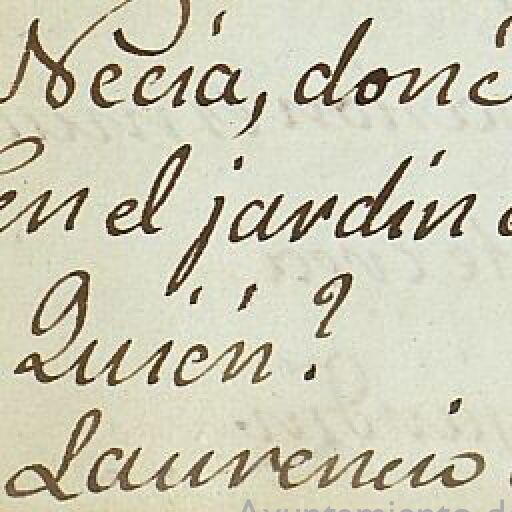 Necia, donc
en el jardin
Quién?
Laurencio
Ayuntamiento d